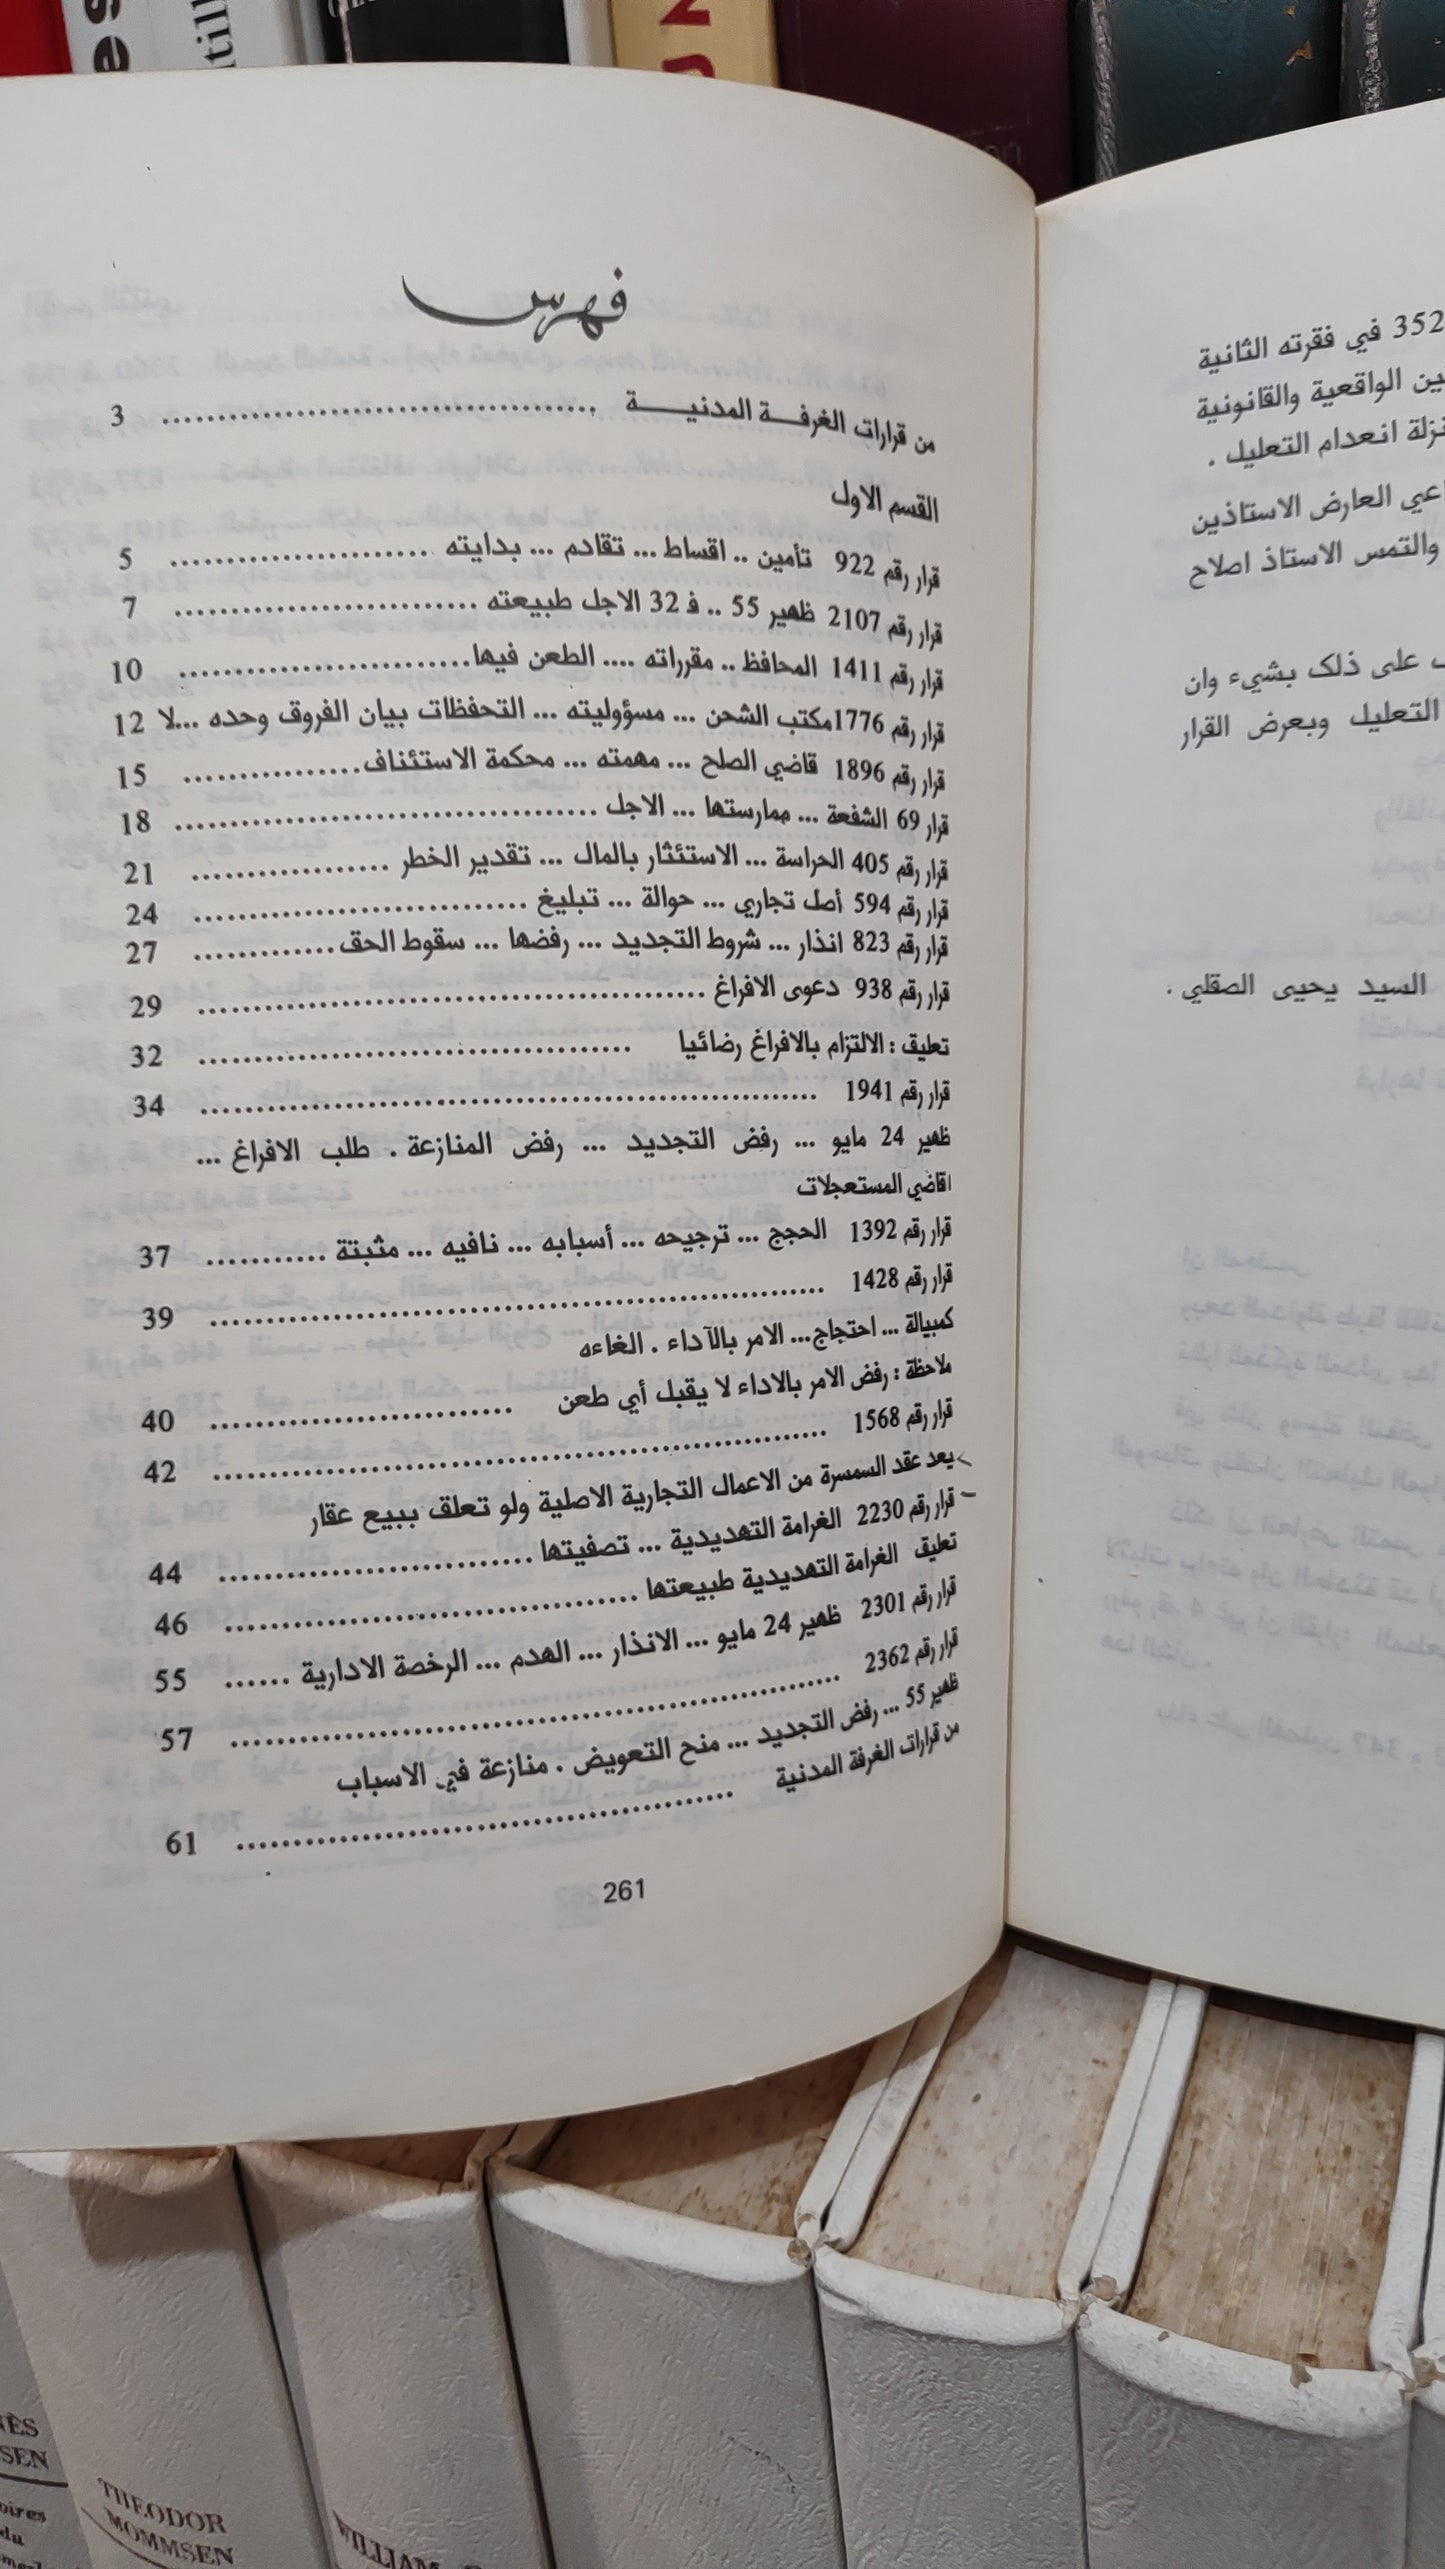 فهرس
من قرارات الغرفة المدنية ........................................ 3
القسم الاول
قرار رقم 922 تأمين .. اقساط ... تقادم ... بدايته ........................ 5
قرار رقم 2107 ظهير 55 .. ف 32 الاجل طبيعته ............................ 7
قرار رقم 1411 المحافظ .. مقرراته .... الطعن فيها........................... 10
قرار رقم 1776مكتب الشحن ... مسؤوليته ... التحفظات بيان الفروق وحده ...لا 12
قرار رقم 1896 قاضي الصلح ... مهمته ... محكمة الاستئناف................. 15
قرار 69 الشفعة ... ممارستها ... الاجل ...................................... 18
قرار رقم 405 الحراسة ... الاستئثار بالمال ... تقدير الخطر .................. 21
قرار رقم 594 أصل تجاري ... حوالة ... تبليغ .............................. 24
قرار رقم 823 انذار ... شروط التجديد ... رفضها ... سقوط الحق............. 27
قرار رقم 938 دعوى الافراغ .............................................. 29
تعليق : الالتزام بالافراغ رضائيا ....................................... 32
قرار رقم 1941 ........................................................ 34
ظهير 24 مايو ... رفض التجديد ... رفض المنازعة . طلب الافراغ ...
اقاضي المستعجلات
قرار رقم 1392 الحجج ... ترجيحه ... أسبابه ... نافيه ... مثبتة ........... 37
قرار رقم 1428 ........................................................ 39
كمبيالة ... احتجاج... الامر بالآداء . الغاءه
ملاحظة : رفض الامر بالاداء لا يقبل أي طعن ........................... 40
قرار رقم 1568 ........................................................ 42
يعد عقد السمسرة من الاعمال التجارية الاصلية ولو تعلق ببيع عقار
قرار رقم 2230 الغرامة التهديدية ... تصفيتها ............................. 44
تعليق الغرامة التهديدية طبيعتها ...................................... 46
قرار رقم 2301 ظهير 24 مايو ... الانذار ... الهدم ... الرخصة الادارية ...... 55
قرار رقم 2362 ........................................................ 57
ظهير 55 ... رفض التجديد ... منح التعويض . منازعة في الاسباب
من قرارات الغرفة المدنية ............................................. 61
261
352 في فقرته الثانية
الواقعية والقانونية
انعدام التعليل .
العارض الاستاذين
والتمس الاستاذ اصلاح
على ذلك بشيء وان
التعليل وبعرض القرار
السيد يحيى الصقلي .
THEODOR
MOMMSEN